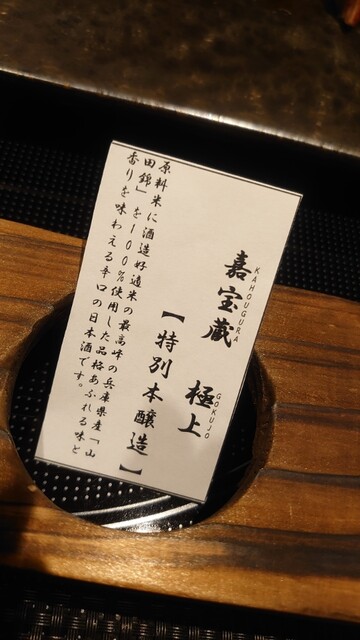 嘉宝蔵 極上
KAHOUGURA GOKUJO
【特別本醸造】
原料米に酒造好適米の最高峰の兵庫県産「山
田錦」を100%使用した品格あふれる味と
香りを味わえる辛口の日本酒です。